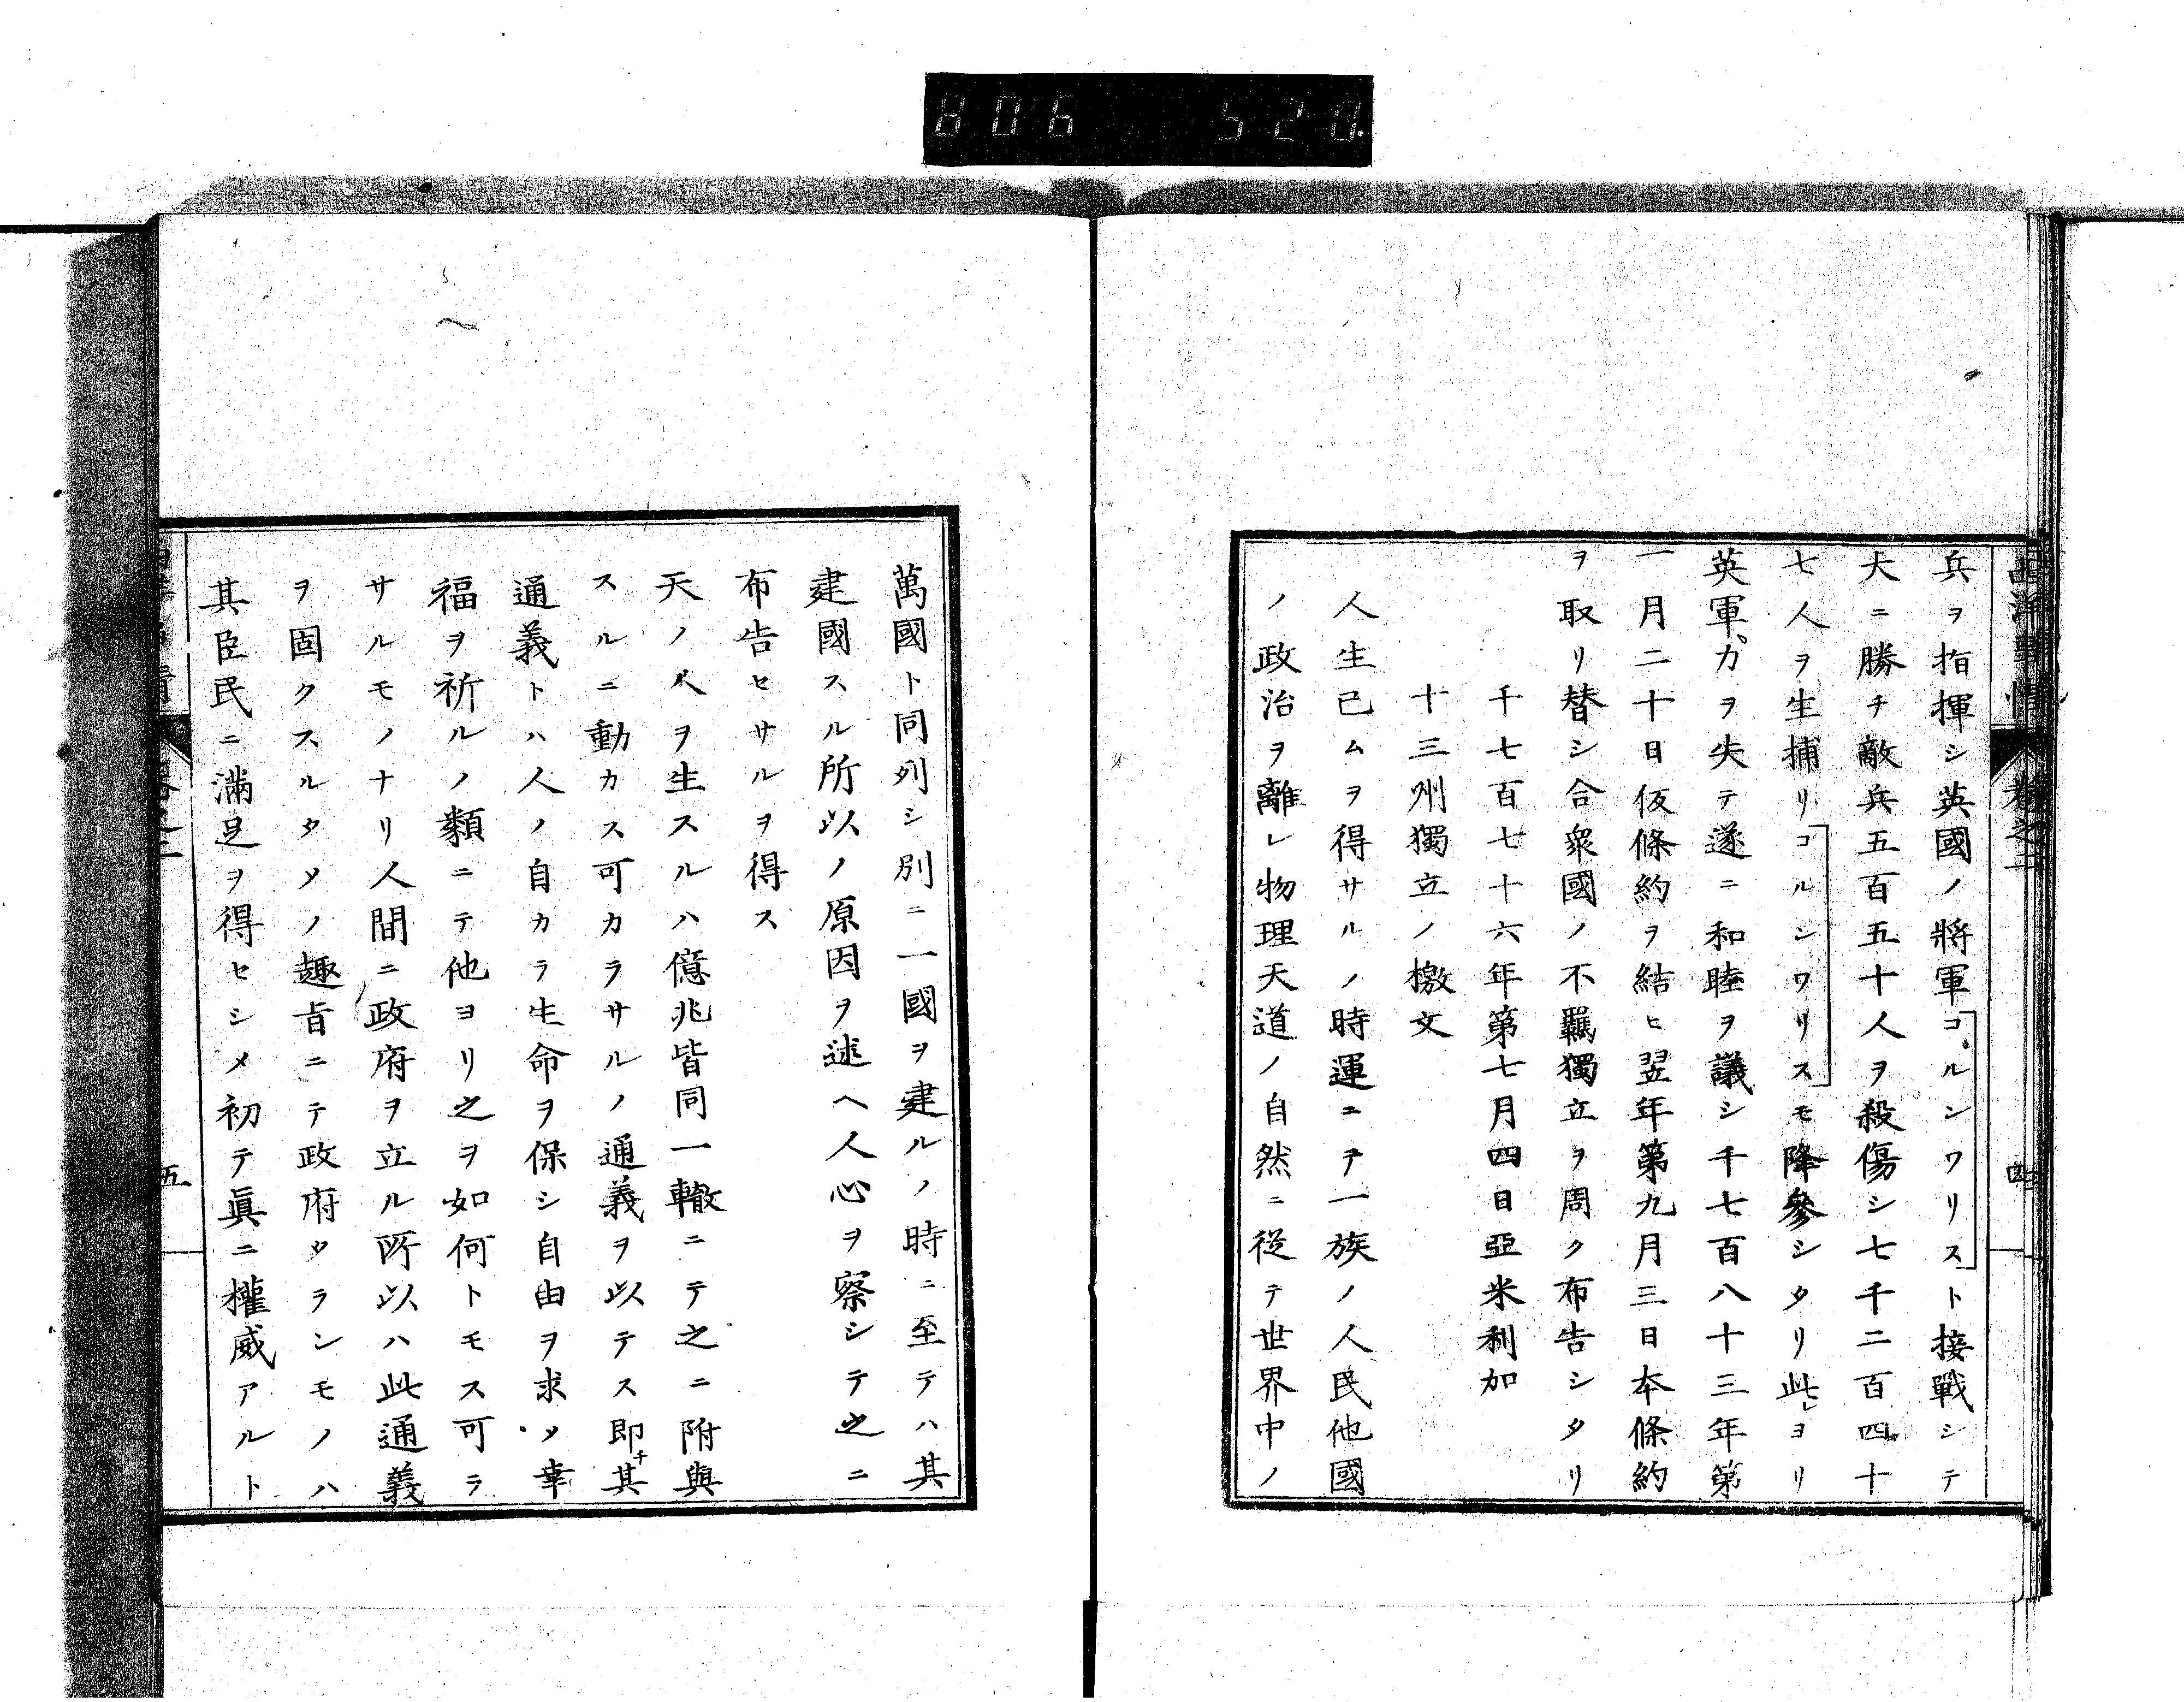 806 520.
西洋事情 卷之二 四
兵ヲ指揮シ英國ノ將軍コルンワリストト接戰シテ
大ニ勝チ敵兵五百五十人ヲ殺傷シ七千二百四十
七人ヲ生捕リコルシワリスモ降參シタリ此ヨリ
英軍カヲ失テ遂ニ和睦ヲ議シ千七百八十三年第
一月二十日仮條約ヲ結ヒ翌年第九月三日本條約
ヲ取リ替シ合衆國ノ不羈獨立ヲ周ク布告シタリ
千七百七十六年第七月四日亞米利加
十三州獨立ノ檄文
人生已ムヲ得サルノ時運ニテ一族ノ人民他國
ノ政治ヲ離レ物理天道ノ自然ニ從テ世界中ノ
萬國ト同列シ別ニ一國ヲ建ルノ時ニ至テハ其
建國スル所以ノ原因ヲ述ヘ人心ヲ察シテ之ニ
布告セサルヲ得ス
天ノ人ヲ生スルハ億兆皆同一轍ニテ之ニ附與
スルニ動カス可カラサルノ通義ヲ以テス即チ其
通義トハ人ノ自カラ生命ヲ保シ自由ヲ求メ幸
福ヲ祈ルノ類ニテ他ヨリ之ヲ如何トモス可ラ
サルモノナリ人間ニ政府ヲ立ル所以ハ此通義
ヲ固クスルタメノ趣旨ニテ政府タランモノハ
其臣民ニ滿足ヲ得セシメ初テ眞ニ權威アルト
五